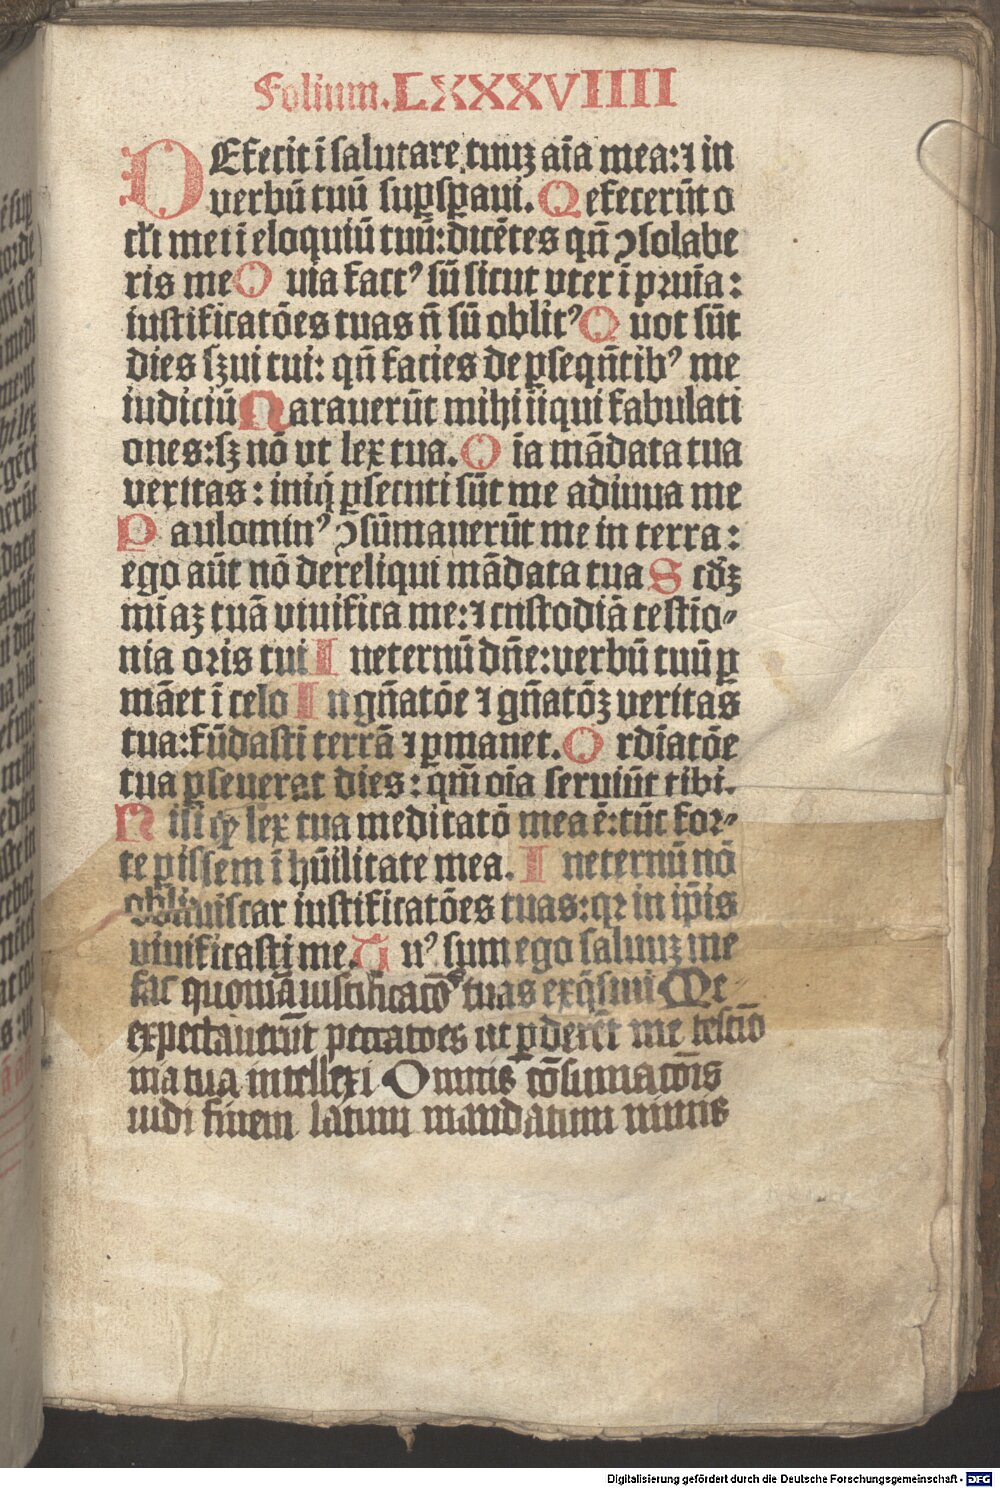 Folium. LXXXVIIII
DEfecit ī salutare tuuꝫ aīa mea: ⁊ in
verbū tuū suꝑsꝑaui. Qefecerūt o
cl̄i mei ī eloquiū tuū: dicētes qn̄ ↄsolabe
ris me Quia factꝰ sū sicut vter ī pruīa:
iustificatōes tuas n̄ sū oblitꝰ Quot sūt
dies sꝫui tui: qn̄ facies de ꝑseqn̄tibꝰ me
iudiciū Narauerūt mihi iīqui fabulati
ones: sꝫ nō vt lex tua. Oīa mādata tua
veritas: iniq̄ ꝑsecuti sūt me adiuua me
Paulominꝰ ↄsūmauerūt me in terra:
ego aūt nō dereliqui mādata tua Scd̄ꝫ
mīaꝫ tuā viuifica me: ⁊ custodiā testīo⸗
nia oris tui In eternū dn̄e: verbū tuū ꝑ
māet ī celo In gn̄atōe ⁊ gn̄atōꝫ veritas
tua: fūdasti terrā ⁊ ꝑmanet. Ordīatōe
tua ꝑseuerat dies: qm̄ oīa seruiūt tibi.
Nisi ꝙ lex tua meditatō mea ē: tūc for⸗
te ꝑissem ī hūilitate mea. In eternū nō
obliuiscar iustificatōes tuas: qr in ip̄is
viuificasti me. Tuꝰ sum ego saluuꝫ me
fac quoniā iustificatōꝰ tuas exq̄siui Me⸗
expectauerūt peccatores ut ꝑderēt me testīo
nia tua intellexi Omnis cōsumacōis
uidi finem latum mandatum nimis
Digitalisierung gefördert durch die Deutsche Forschungsgemeinschaft - DFG